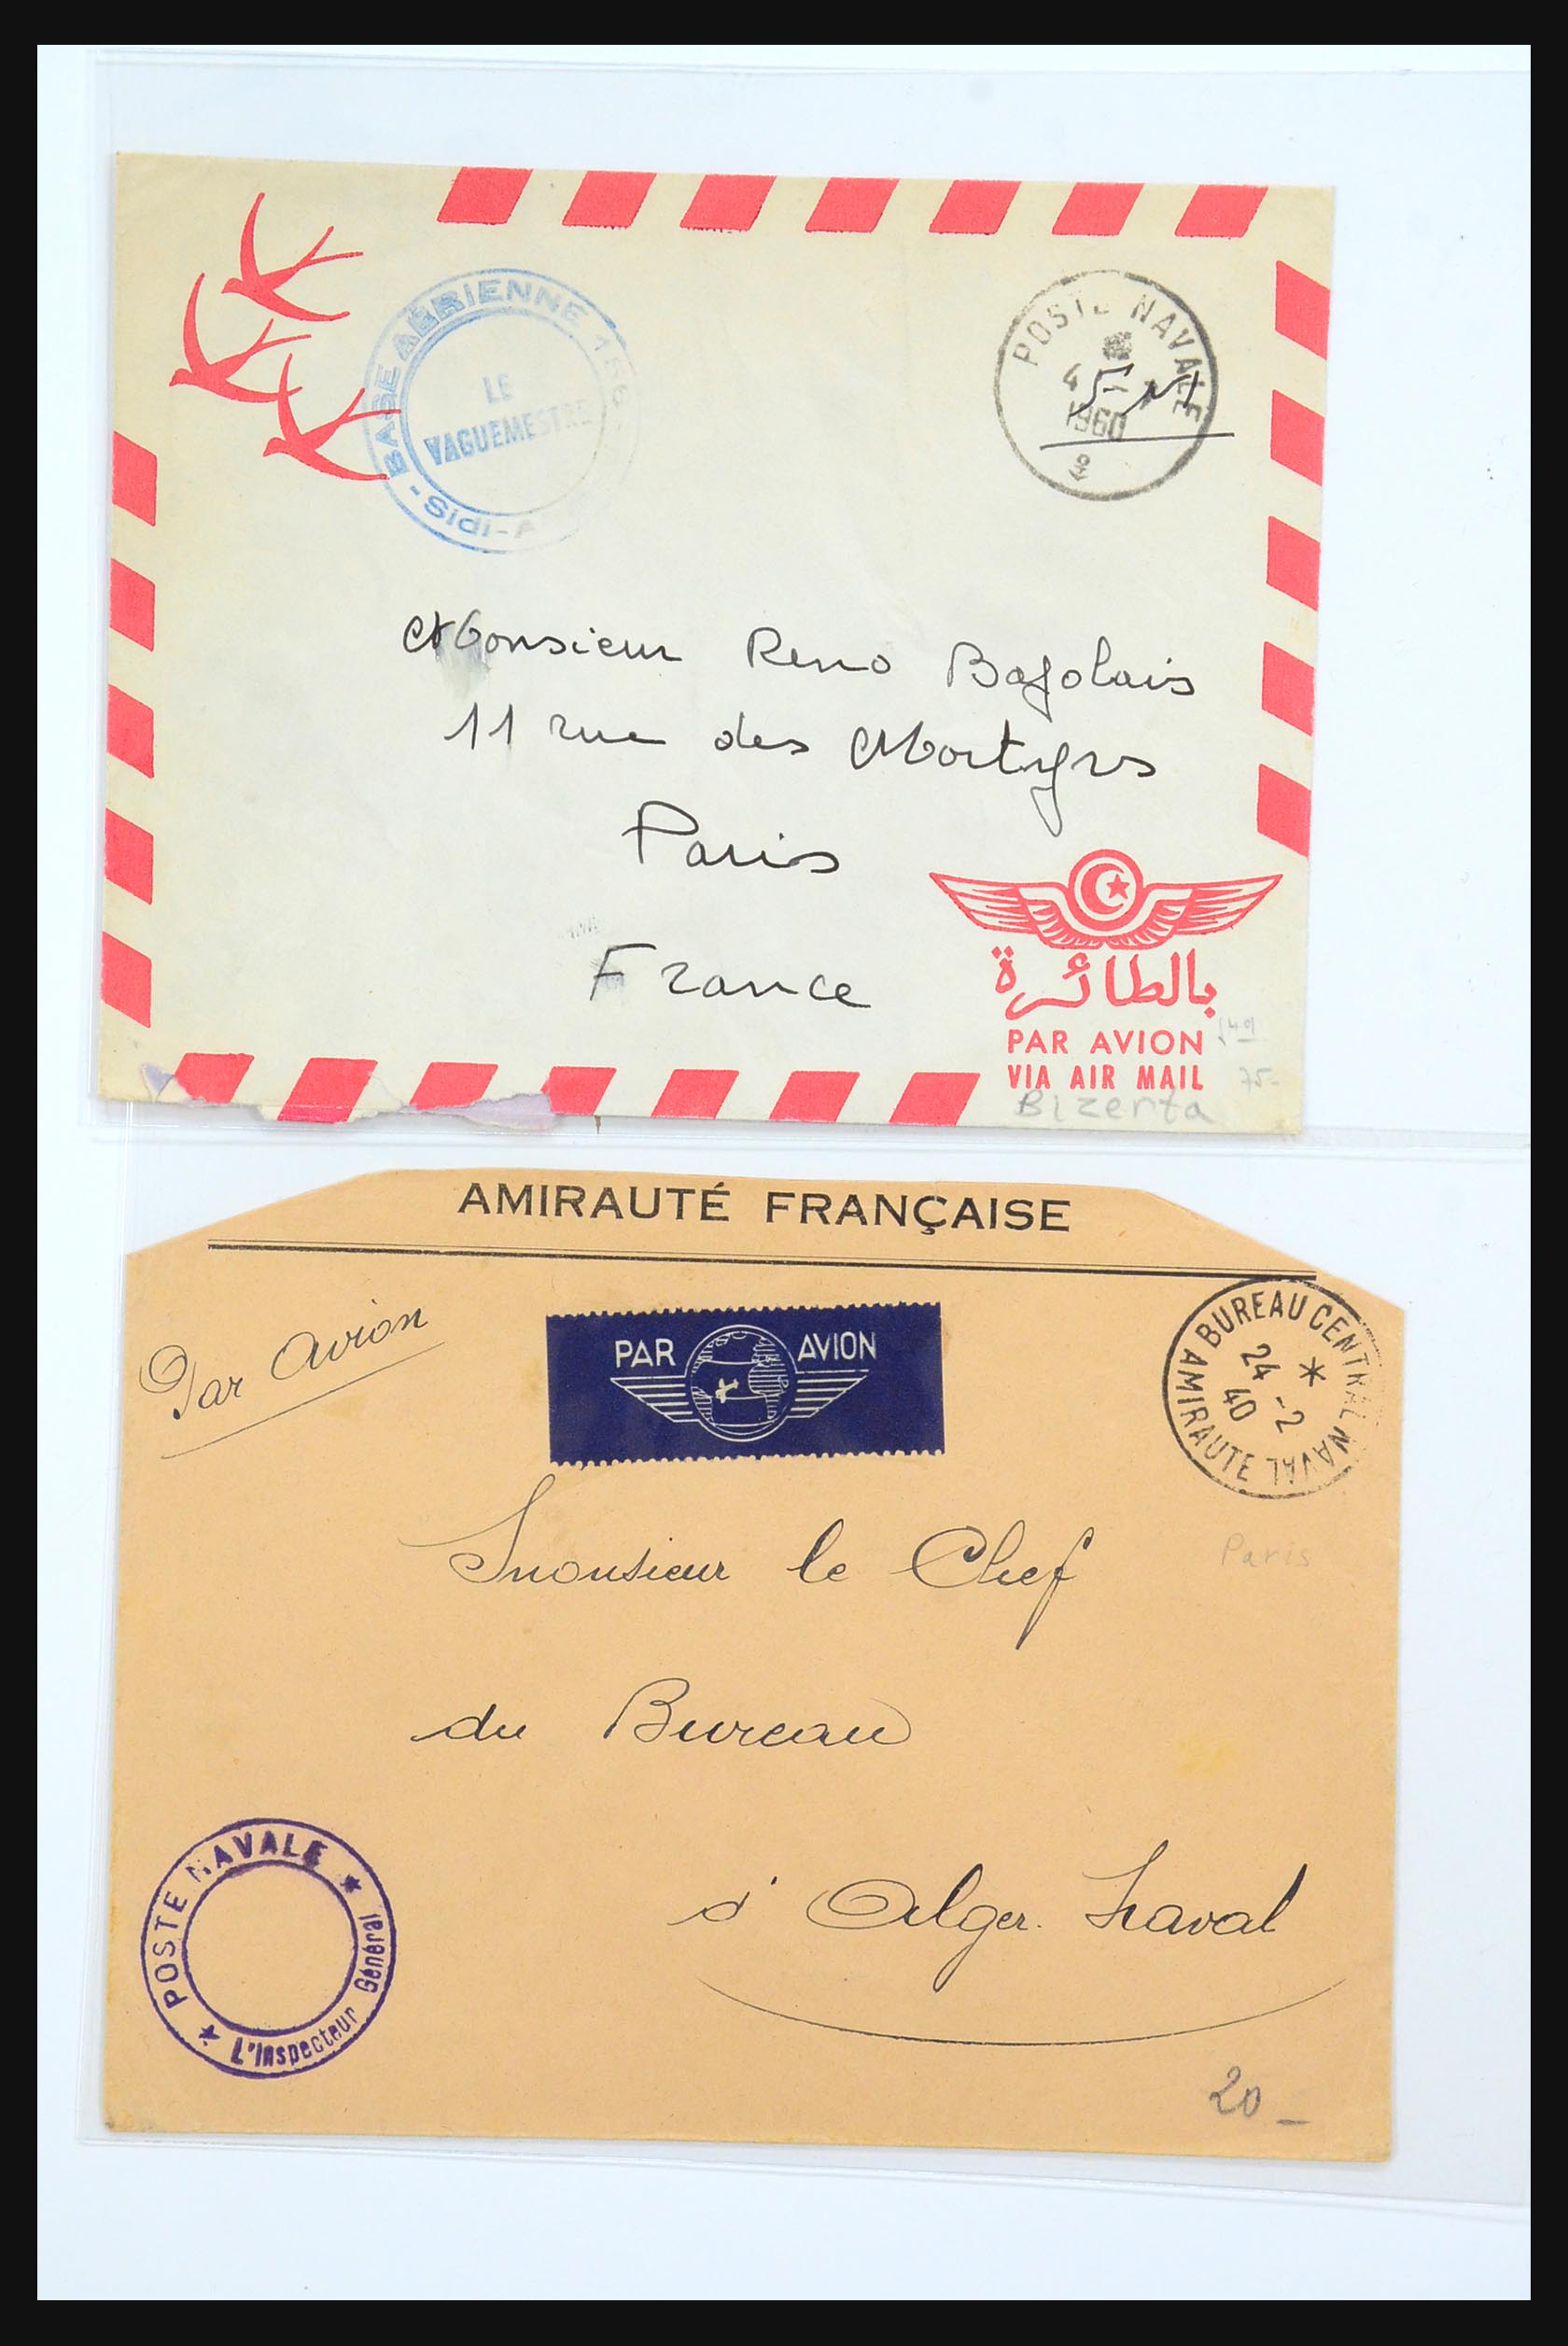 BASE AÉRIENNE 156
LE
VAGUEMESTRE
- Sidi-A
POSTE NAVALE
4
1960
F M
Monsieur Reno Bajolais
11 rue des Martyrs
Paris
France
بالطائرة
PAR AVION
VIA AIR MAIL
75-
Bizerta
AMIRAUTÉ FRANÇAISE
Par Avion
PAR AVION
BUREAU CENTRAL NAVAL
24 -2
40
AMIRAUTE
Paris
Monsieur le Chef
du Bureau
d'Alger Naval
POSTE NAVALE
L'Inspecteur Général
20-